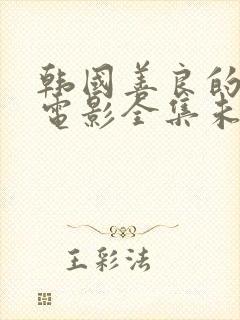 韩國善良的
電影全集未
王彩法